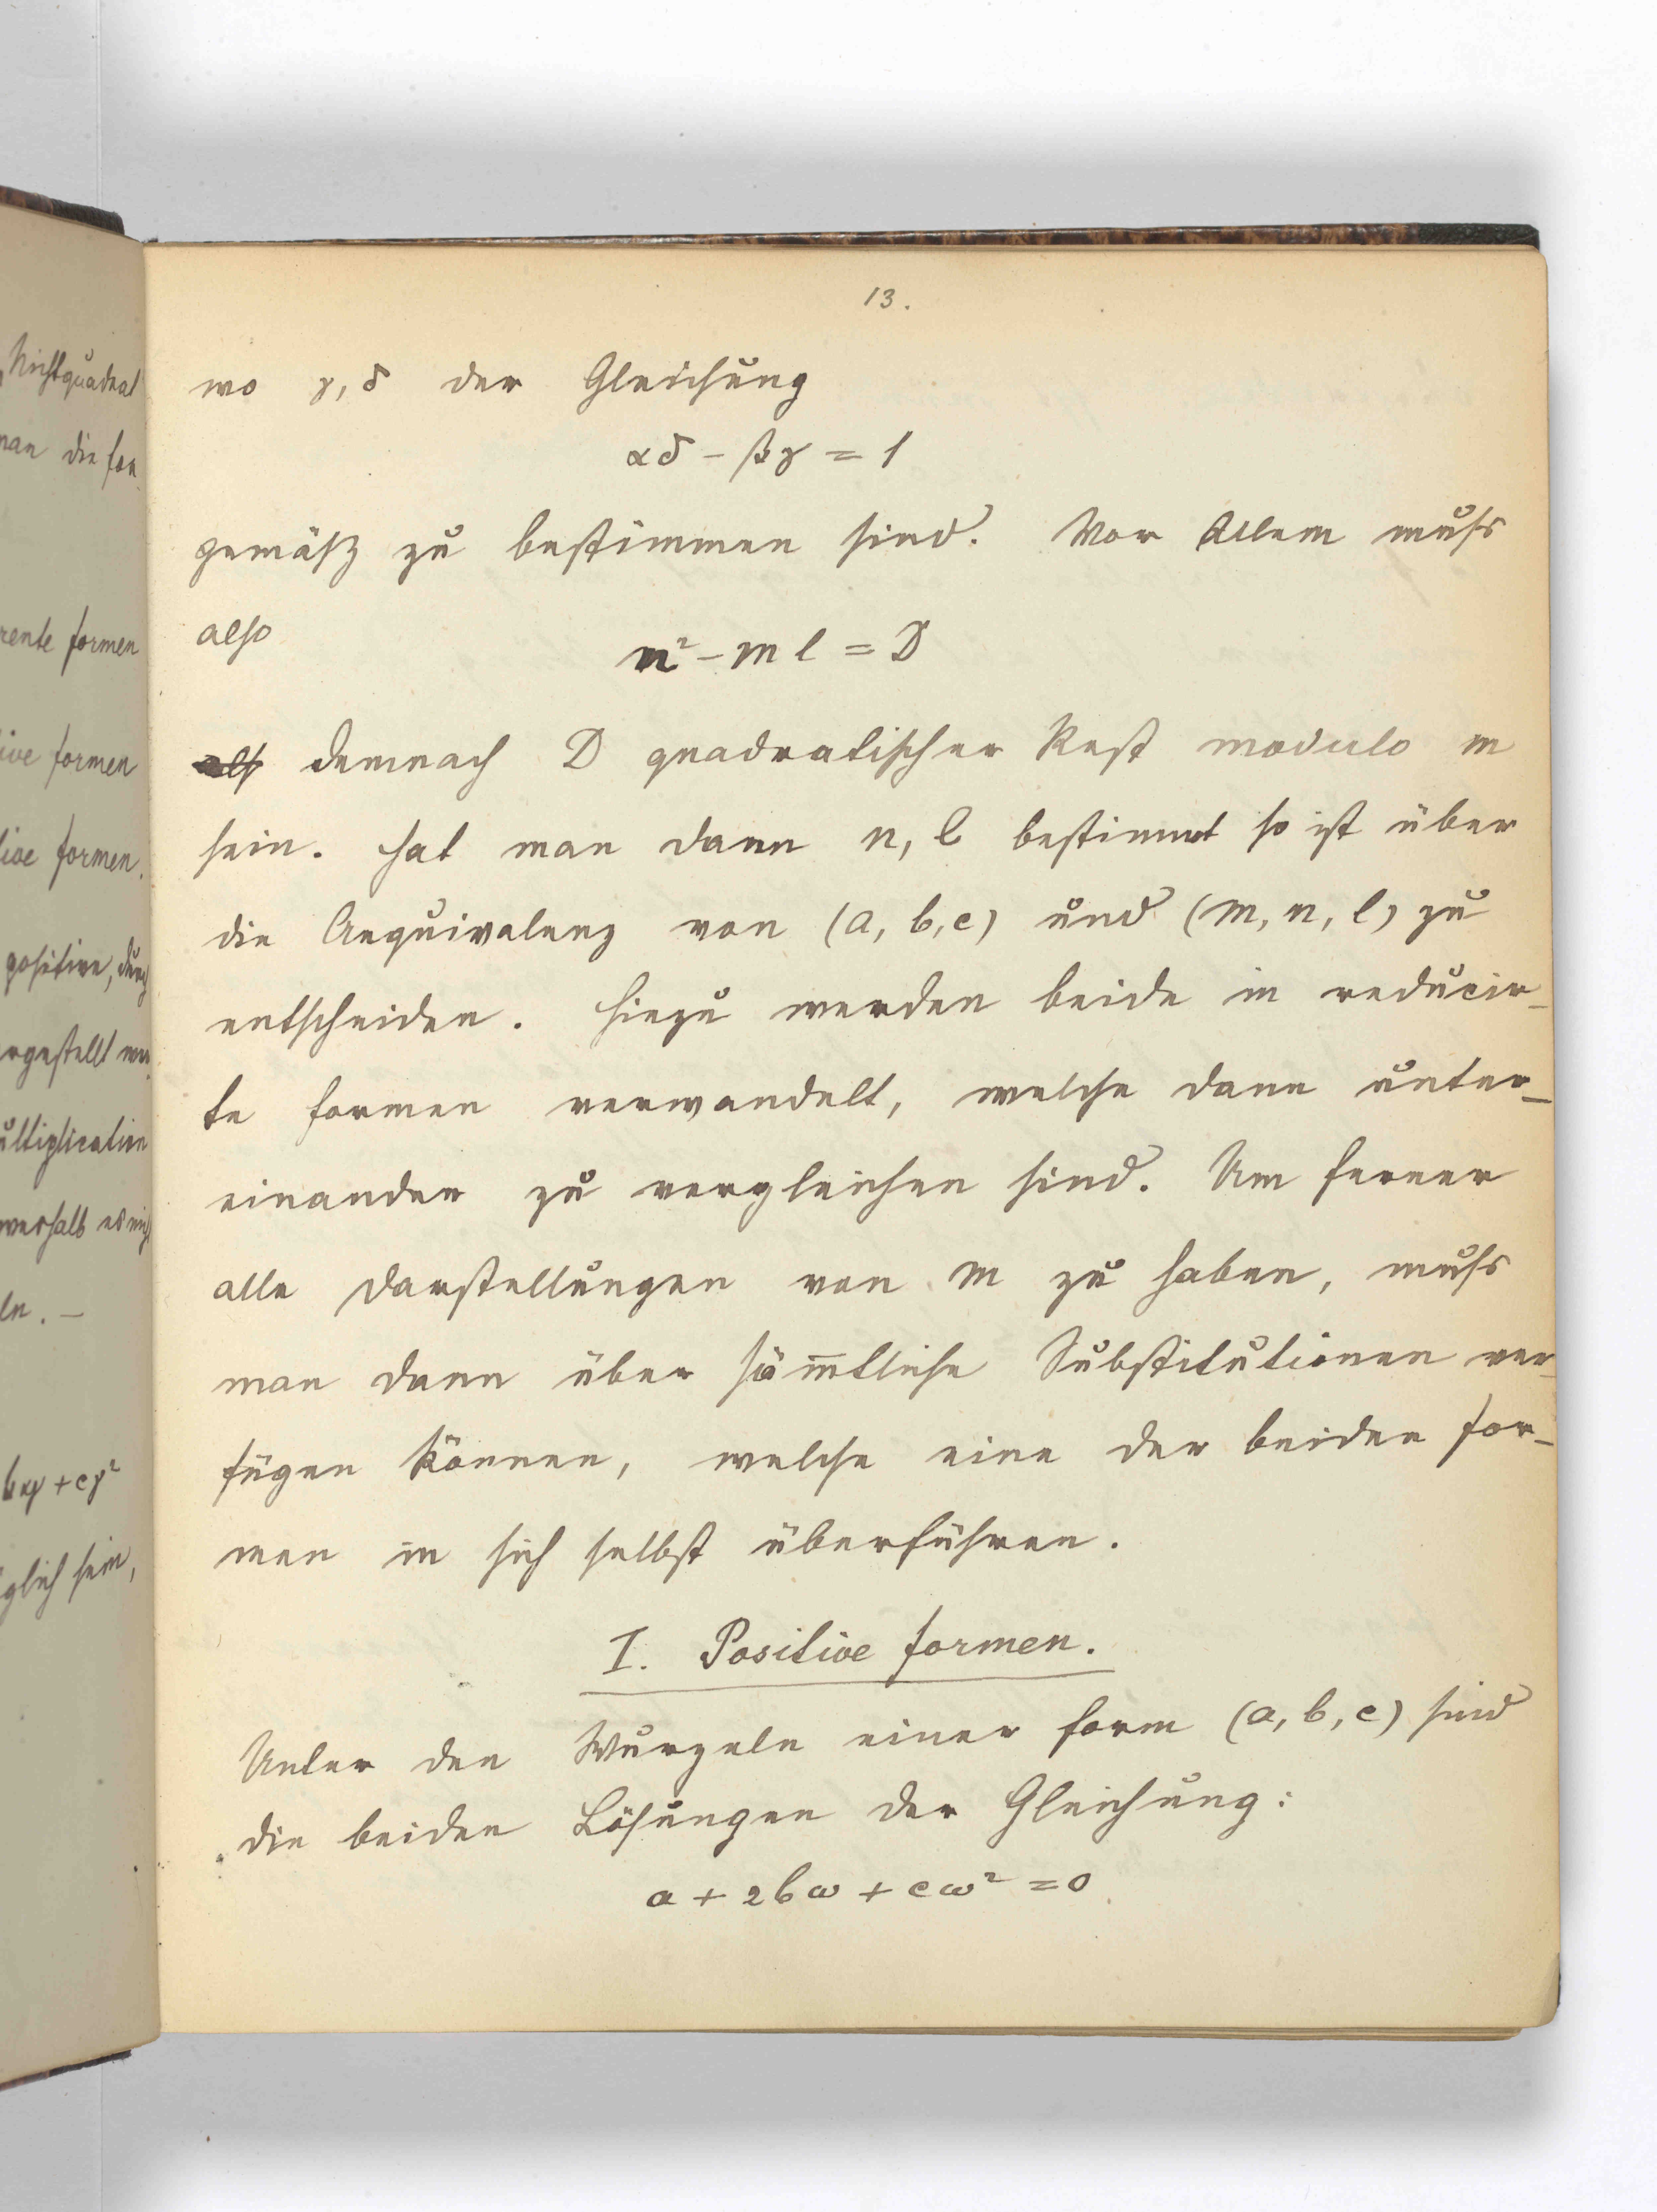 13.
wo γ, δ der Gleichung
αδ – βγ = 1
gemäß zu bestimmen sind. Vor Allem muss
also
n² – m l = D
demnach D quadratischer Rest modulo m
sein. Hat man dann n, l bestimmt so ist über
die Aequivalenz von (a, b, c) und (m, n, l) zu
entscheiden. Hiezu werden beide in reducir-
te Formen verwandelt, welche dann unter-
einander zu vergleichen sind. Um ferner
alle Darstellungen von m zu haben, muss
man dann über säm̅tliche Substitutionen ver-
fügen können, welche eine der beiden For-
men in sich selbst überführen.
I. Positive Formen.
Unter den Wurzeln einer Form (a, b, c) sind
die beiden Lösungen der Gleichung:
a + 2bω + cω² = 0
Nichtquadrat
man die For
rente Formen
ive Formen
tive Formen.
positive, durch
rgestellt wer
ultiplication
weshalb es nich
ln. –
bxy + cy²
glich sein,